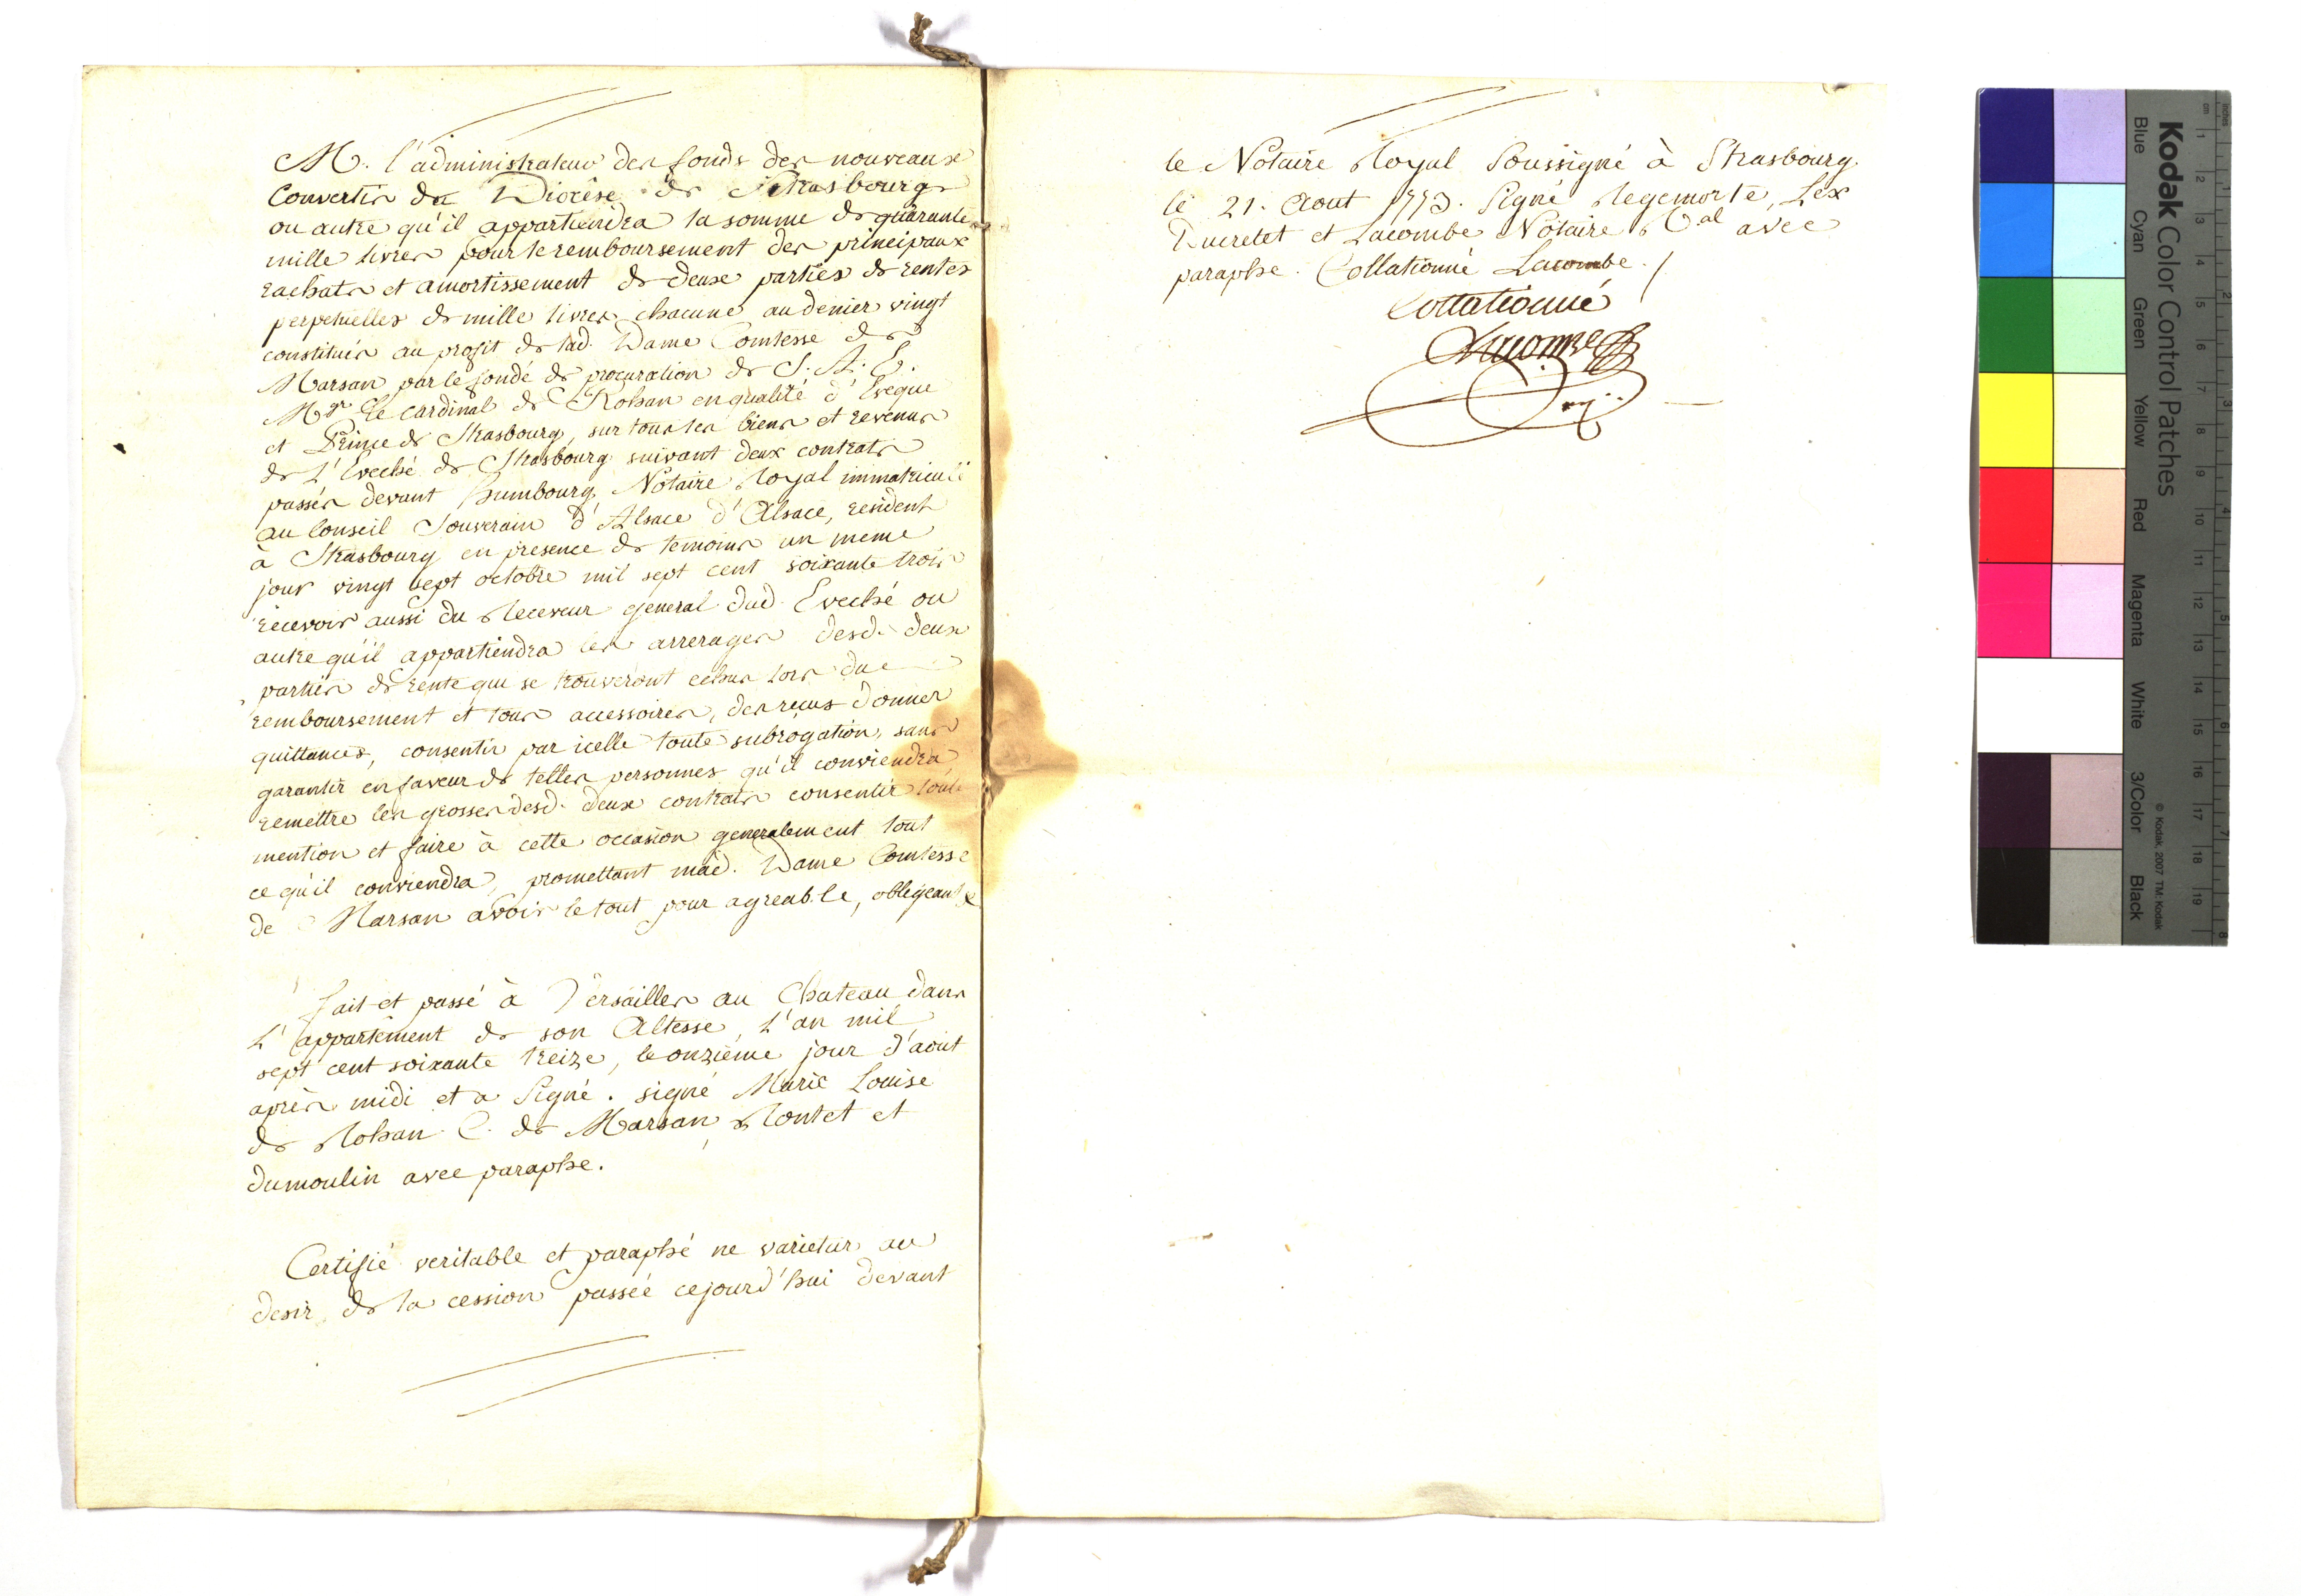 M. l'administrateur des fonds des nouveaux
Convertis du Diocèse de Strasbourg
ou autre qu'il appartiendra la somme de quarante
mille livres pour le remboursement des principaux
rachats et amortissement de deux parties de rentes
perpetuelles de mille livres chacune au denier vingt
constitués au profit de lad. Dame Comtesse de
Marsan par le fondé de procuration de S. A. E.
Mgr Le cardinal de Rohan en qualité d'Eveque
et Prince de Strasbourg, sur tous les biens et revenus
de L'Eveché de Strasbourg suivant deux contrats
passés devant Humbourg Notaire Royal immatriculé
au Conseil Souverain d'Alsace d'Alsace, resident
à Strasbourg en presence de temoins un meme
jour vingt sept octobre mil sept cent soixante trois
recevoir aussi du Receveur general dud. Eveché ou
autre qu'il appartiendra les arrerages desd. deux
parties de rente qui se trouveront echus lors du
remboursement et tous accessoires, des reçus donner
quittances, consentir par icelle toute subrogation, sans
garantir en faveur de telles personnes qu'il conviendra
remettre les grosses desd. deux contrats consentir toute
mention et faire à cette occasion generalement tout
ce qu'il conviendra, promettant mad. Dame Comtesse
de Marsan avoir le tout pour agreable, obligeant &
fait et passé à Versailles au Chateau dans
L'appartement de son Altesse, L'an mil
sept cent soixante treize, le onziéme jour d'aout
après midi et a Signé. signé Marie Louise
de Rohan C. de Marsan, Rontet et
dumoulin avec paraphe.
Certifié veritable et paraphé ne varietur au
desir de la cession passée cejourd'hui devant
le Notaire Royal Soussigné à Strasbourg.
le 21. Aout 1773. Signé Regemorte, Lex
Ducretet et Lacombe Notaire Ral avec
paraphe. Collationné Lacombe ./
Collationné
Lacombe
Kodak Color Control Patches
© Kodak, 2007 TM: Kodak
Blue Cyan Green Yellow Red Magenta White 3/Color Black
cm 1 2 3 4 5 6 7 8 9 10 11 12 13 14 15 16 17 18 19
inches 1 2 3 4 5 6 7 8